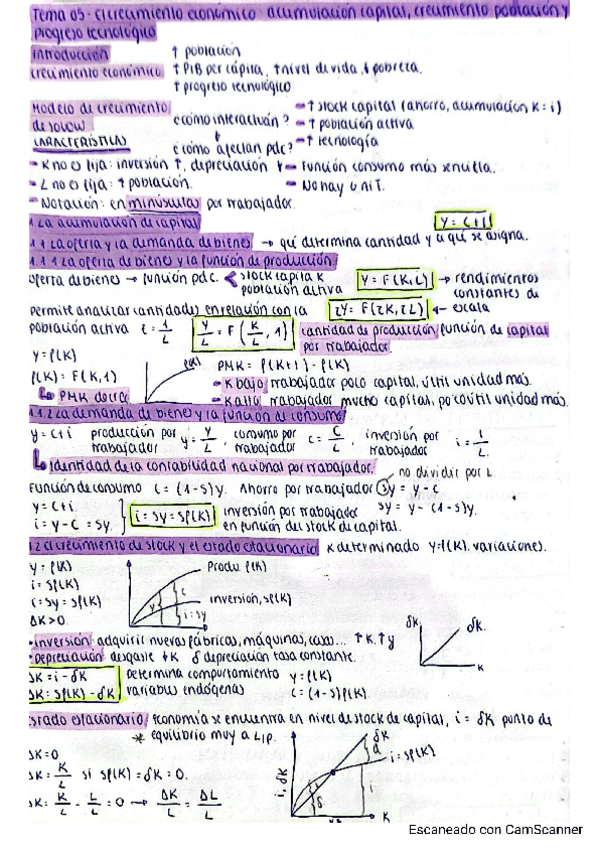 Tema 03- El crecimiento económico acumulación capital, crecimiento población y
progreso tecnológico
Introducción ↑ población
crecimiento económico ↑ PIB per cápita, ↑ nivel de vida ↓ pobreza.
↑ progreso tecnológico
Modelo de crecimiento de Solow
¿cómo interactúan?
→ ↑ stock capital (ahorro, acumulación K = i)
→ ↑ población activa
→ ↑ tecnología
¿cómo afectan pdc?
CARACTERÍSTICAS
- K no es fija: inversión ↑, depreciación ↓
- Función consumo más sencilla.
- L no es fija: ↑ población.
- No hay G ni T.
- Notación: en minúsculas por trabajador.
1. La acumulación de capital
Y = C + I
1.1 La oferta y la demanda de bienes → qué determina cantidad y a qué se asigna.
1.1.1 La oferta de bienes y la función de producción.
oferta de bienes → función pdc. < stock capital K población activa
Y = F(K,L) → rendimientos constantes de escala
zY = F(zK, zL) ←
permite analizar cantidades en relación con la
población activa z = 1/L
Y/L = F(K/L, 1)
cantidad de producción por trabajador función de capital
y = f(K)
f(K) = F(K,1)
↳ PMK decrec.
f(K)
PMK = f(K+1) - f(K)
- K bajo, trabajador poco capital, útil unidad más.
- K alto, trabajador mucho capital, poco útil unidad más.
1.1.2 La demanda de bienes y la función de consumo
y = c + i producción por trabajador y = Y/L, consumo por trabajador c = C/L, inversión por trabajador i = I/L.
↳ Identidad de la contabilidad nacional por trabajador.
no dividir por L
Función de consumo c = (1-s)y. Ahorro por trabajador sy = y - c
y = c + i
i = y - c = sy.
i = sy = sf(K)
inversión por trabajador
en función del stock de capital.
sy = y - (1-s)y.
1.2 El crecimiento de stock y el estado estacionario K determinado y = f(K). variaciones.
y = f(K)
i = sf(K)
i = sy = sf(K)
ΔK > 0
Produ. f(K)
inversión, sf(K)
y
c
i = sy
- inversión: adquirir nuevas fábricas, máquinas, casas... ↑K, ↑y
- depreciación: desgaste ↓K δ depreciación tasa constante.
δK
δK.
K
ΔK = i - δK
ΔK = sf(K) - δK
Determina comportamiento
variables endógenas
y = f(K)
c = (1-s)f(K).
Estado estacionario: economía se encuentra en nivel de stock de capital, i = δK punto de
* equilibrio muy a L/P.
ΔK = 0
ΔK = K/L si sf(K) = δK = 0.
ΔK = K/L - L/L = 0 → ΔK/L = ΔL/L
i, δK
δK
d
i = sf(K)
K
Escaneado con CamScanner